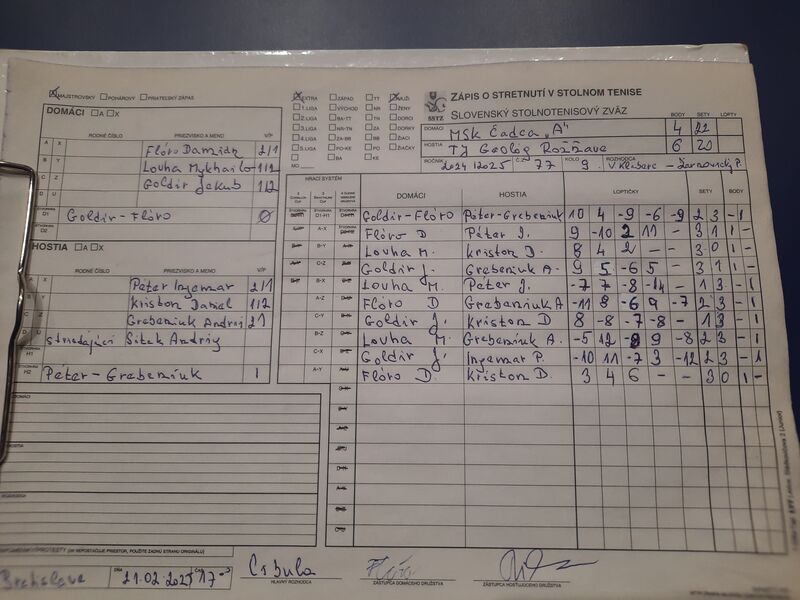 MAJSTROVSKÝ POHÁROVÝ PRIATEĽSKÝ ZÁPAS
DOMÁCI A X
RODNÉ ČÍSLO PRIEZVISKO A MENO V/P
A X Flóro Damián 2/1
B Y Louha Mykhailo 1/2
C Z Goldír Jakub 1/2
D U
D1 Goldír-Flóro 0
D2
HOSTIA A X
RODNÉ ČÍSLO PRIEZVISKO A MENO V/P
Péter Ingemar 2/1
Kriston Daniel 1/2
Grebeniuk Andrii 2/1
striedajúci Sitak Andriy
H1
H2 Péter-Grebeniuk 1
HOSTIA
EXTRA ZÁPAD TT MUŽI
1.LIGA VÝCH NR ŽENY
2.LIGA BA-TT TN DORCI
3.LIGA NR-TN ZA DORKY
4.LIGA ZA-BB BB ŽIACI
5.LIGA PO-KE PO ŽIAČKY
MO BA KE
SSTZ
ZÁPIS O STRETNUTÍ V STOLNOM TENISE
SLOVENSKÝ STOLNOTENISOVÝ ZVÄZ
BODY SETY LOPTY
DOMÁCI MSK Čadca "A" 4 22
HOSTIA TJ Geológ Rožňava 6 20
ROČNÍK 2024/2025 Č.Z. 77 KOLO 9. ROZHODCA
HRACÍ SYSTÉM
DOMÁCI HOSTIA LOPTIČKY SETY BODY
D1-H1 Goldír-Flóro Péter-Grebeniuk 10 4 -9 -6 -9 2 3 - 1
A-X Flóro D Péter J. 9 -10 2 11 - 3 1 1 -
B-Y Louha M. Kriston D. 8 4 2 - - 3 0 1 -
C-Z Goldír J. Grebeniuk A. 9 5 -6 5 - 3 1 1 -
B-X Louha M. Péter J. -7 7 -8 -14 - 1 3 - 1
A-Z Flóro D Grebeniuk A -11 8 -6 9 -7 2 3 - 1
C-Y Goldír J. Kriston D 8 -8 -7 -8 - 1 3 - 1
B-Z Louha M. Grebeniuk A. -5 12 -8 9 -8 2 3 - 1
C-X Goldír J. Ingemar P. -10 11 -7 3 -12 2 3 - 1
A-Y Flóro D. Kriston D. 3 4 6 - - 3 0 1 -
21.02.2025 17
HLAVNÝ ROZHODCA
ZÁSTUPCA DOMÁCEHO DRUŽSTVA
ZÁSTUPCA HOSŤUJÚCEHO DRUŽSTVA